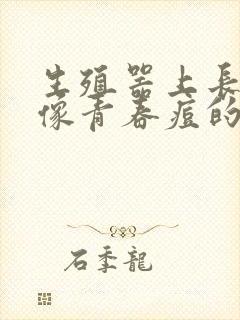 生殖器上長
像青春痘的
石季龍